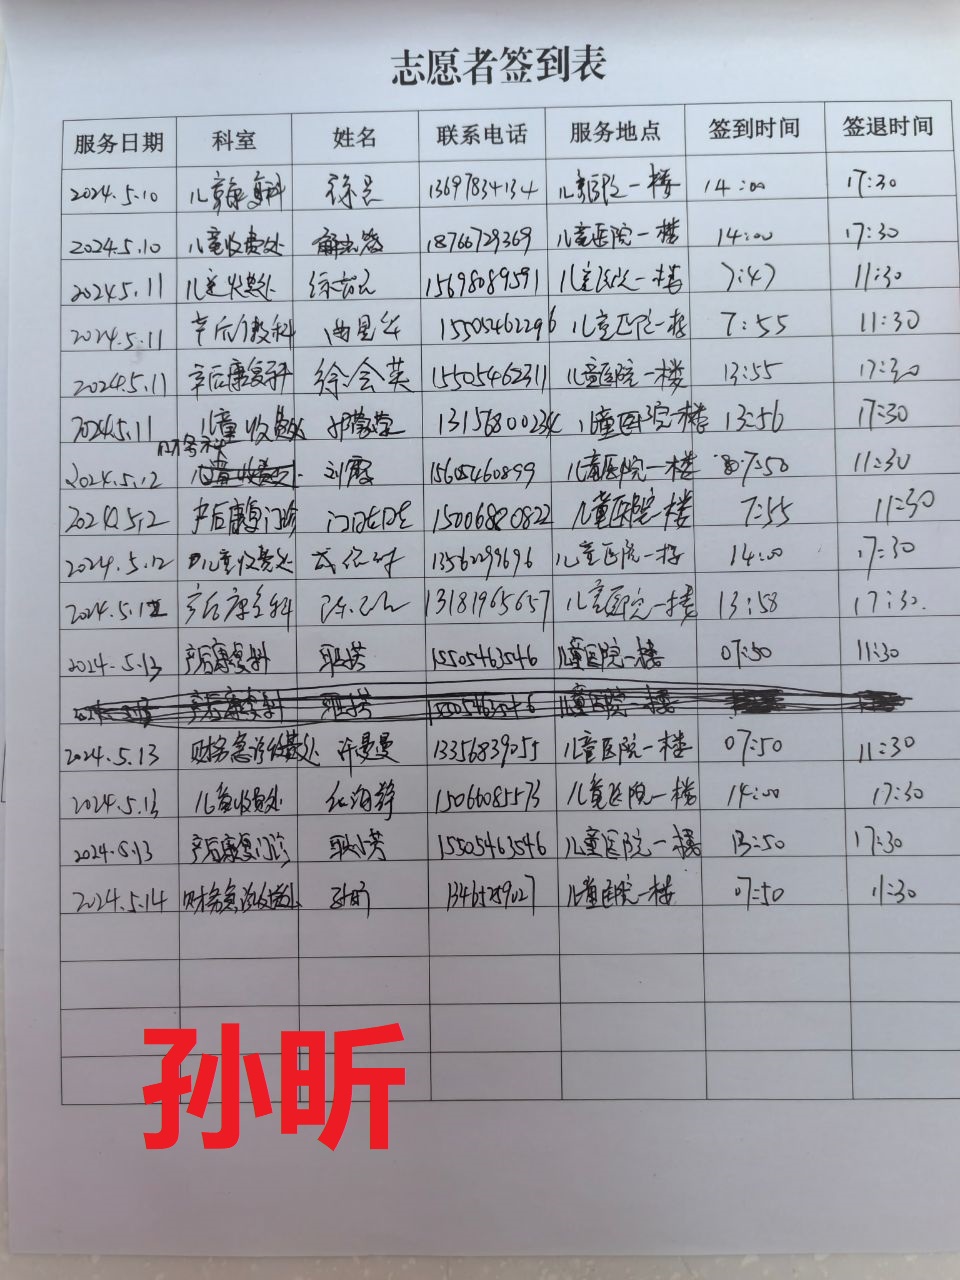 志愿者签到表
服务日期 科室 姓名 联系电话 服务地点 签到时间 签退时间
2024.5.10 儿童康复科 徐 13697834134 儿童医院一楼 14:00 17:30
2024.5.10 儿童收费处 18766729369 儿童医院一楼 14:00 17:30
2024.5.11 儿童收费处 15698089591 儿童医院一楼 7:47 11:30
2024.5.11 产后 科 15505462296 儿童医院一楼 7:55 11:30
2024.5.11 产后康复科 徐会英 15505462311 儿童医院一楼 13:55 17:30
2024.5.11 儿童收费处 1315680023 儿童医院一楼 13:56 17:30
财务科
2024.5.12 刘霞 15605460899 儿童医院一楼 7:50 11:30
2024.5.12 产后康复门诊 15006820822 儿童医院一楼 7:55 11:30
2024.5.12 儿童收费处 13562299696 儿童医院一楼 14:00 17:30
2024.5.12 产后康复科 13181965657 儿童医院一楼 13:58 17:30.
2024.5.13 产后康复科 耿小芳 15505463546 儿童医院一楼 07:50 11:30
2024.5.13 财务急诊收费处 许曼曼 13356839055 儿童医院一楼 07:50 11:30
2024.5.13 儿童收费处 15066085573 儿童医院一楼 14:00 17:30
2024.5.13 产后康复门诊 耿小芳 15505463546 儿童医院一楼 13:50 17:30
2024.5.14 财务急诊收费处 孙昕 13465259027 儿童医院一楼 07:50 11:30
孙昕